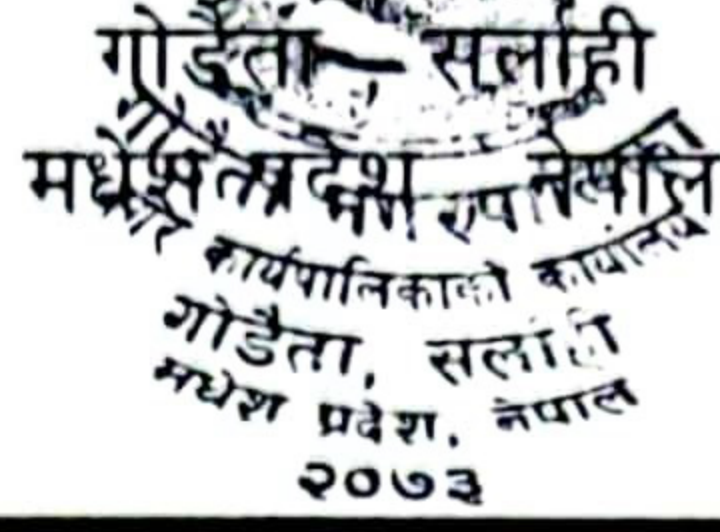 गोडैता — सर्लाही
मधेस प्रदेश नेपाल
गोडैता नगरपालिका
नगर कार्यपालिकाको कार्यालय
गोडैता, सर्लाही
मधेश प्रदेश, नेपाल
२०७३